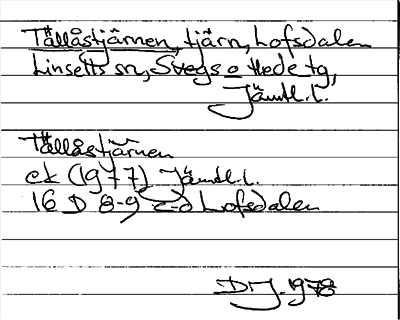 Tällåstjärnen, tjärn, Lofsdalen
Linsells sn, Svegs o Hede tg,
Jämtl.l.
Tällåstjärnen
ek (1977) Jämtl.l.
16 D 8-9 c-d Lofsdalen
DJ. 1978